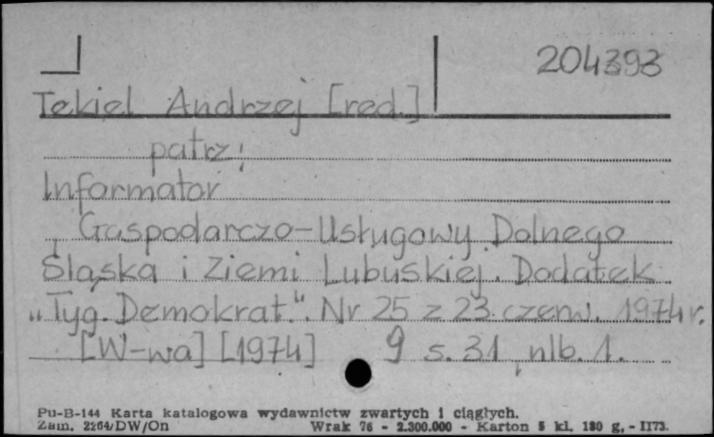 204393
Tekiel Andrzej [red.]
patrz:
Informator
Gospodarczo-Usługowy Dolnego
Śląska i Ziemi Lubuskiej. Dodatek
"Tyg. Demokrat." Nr 25 z 23. czerw. 1974 r.
[W-wa] [1974] 9 s. 31, nlb. 1.
Pu-B-144 Karta katalogowa wydawnictw zwartych i ciągłych.
Zam. 2264/DW/On Wrak 76 - 2.300.000 - Karton 5 kl. 180 g, - II73.